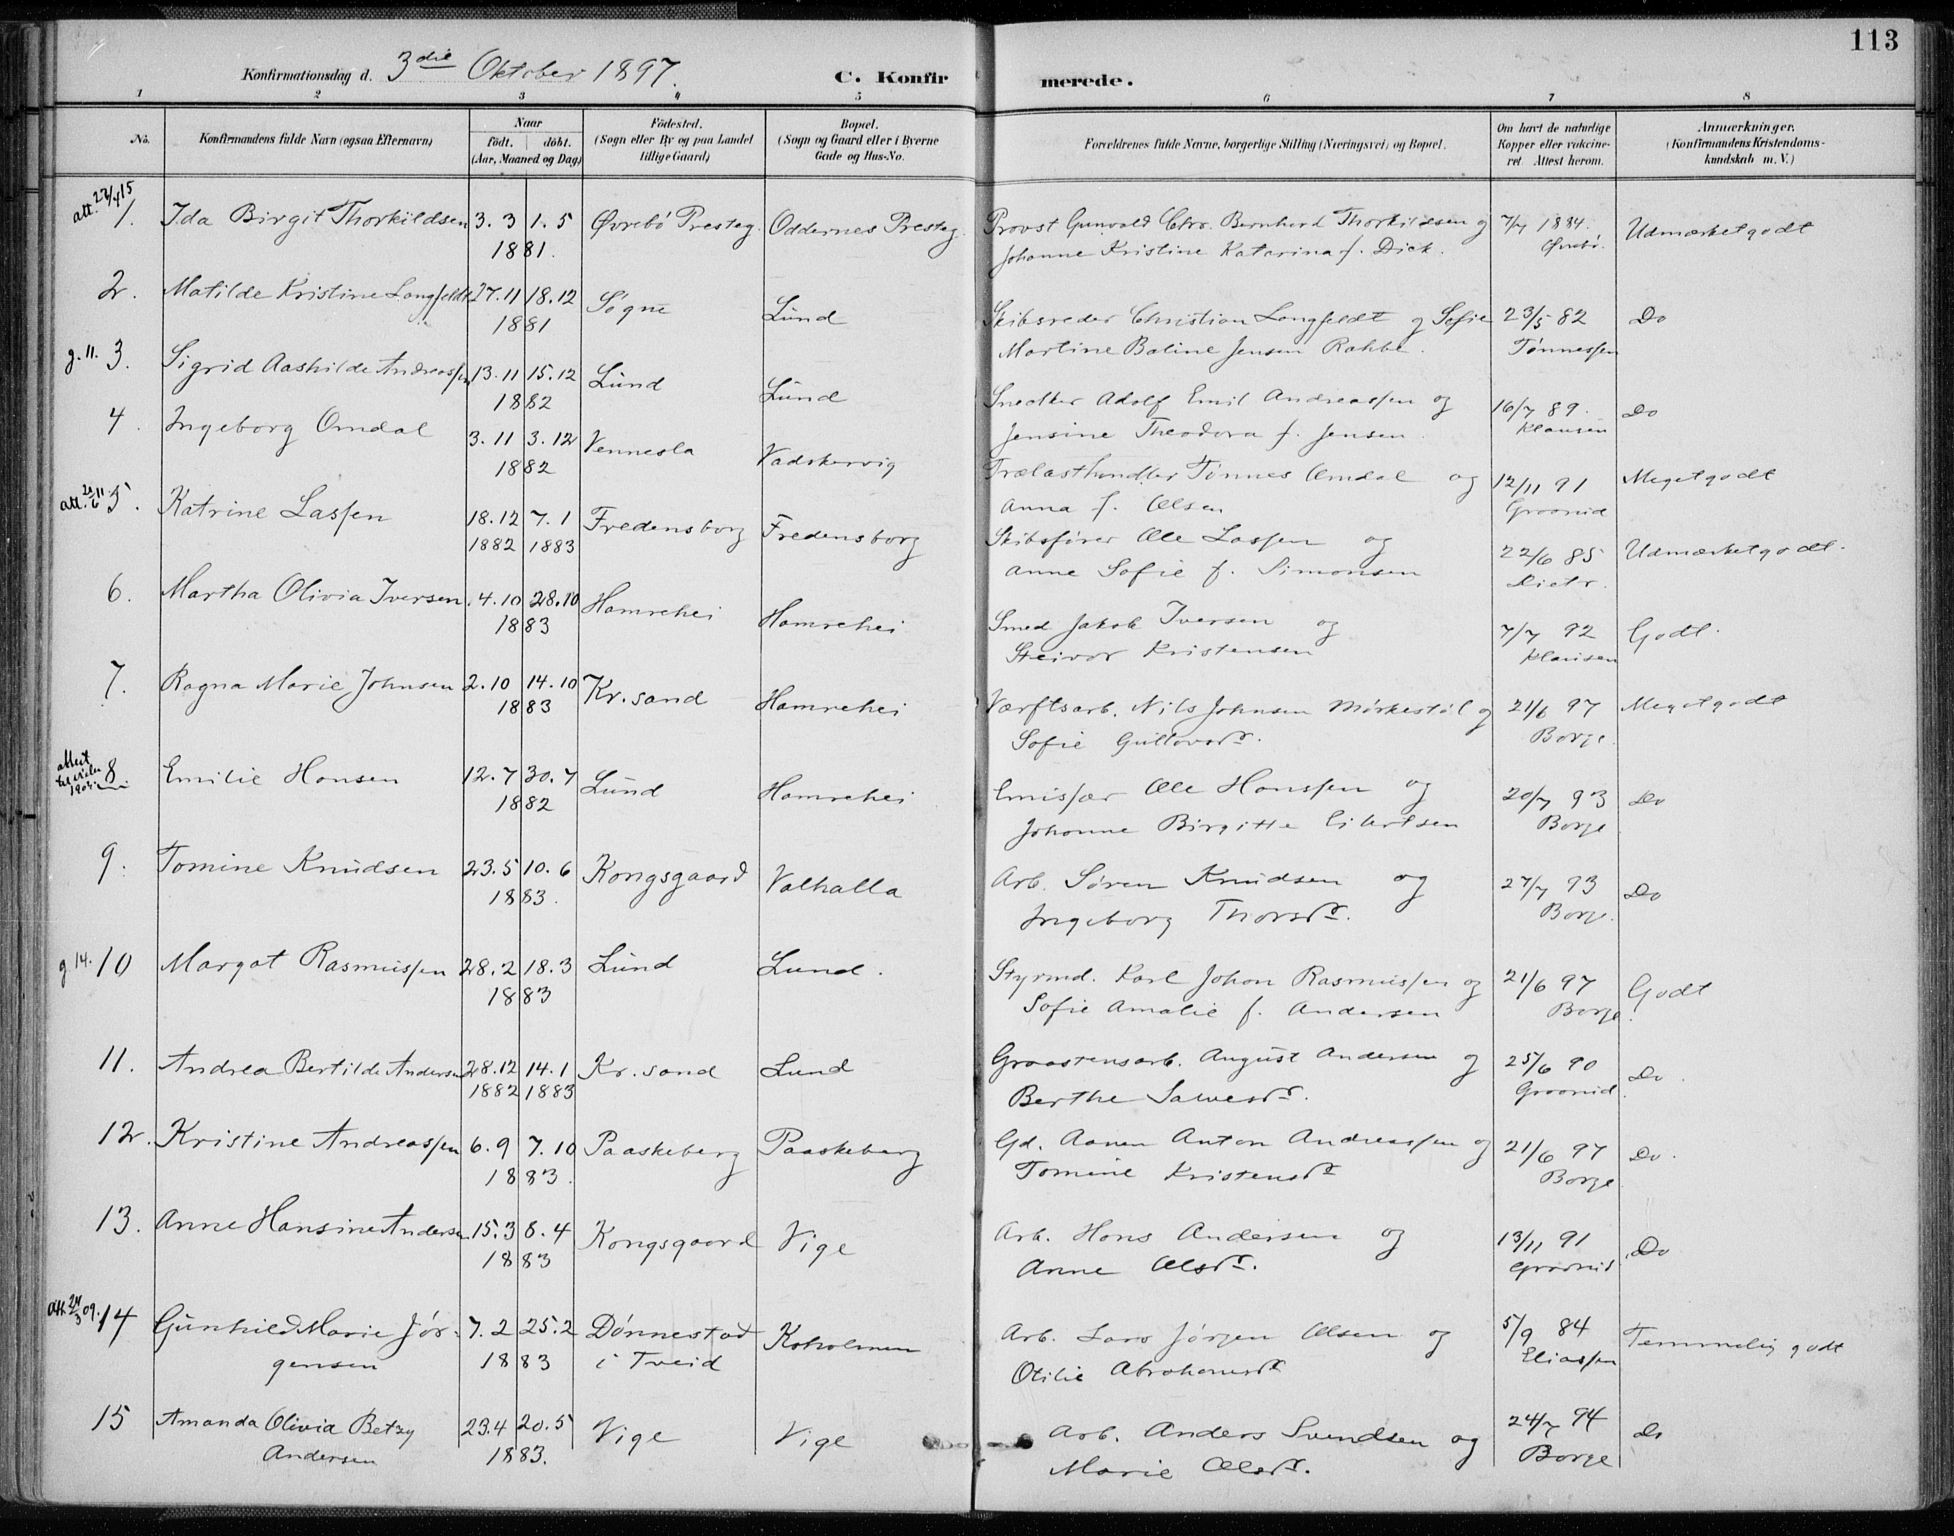 113
Konfirmationsdag d. 3die Oktober 1897. C. Konfirmerede.
1 2 3 4 5 6 7 8
No. Konfirmandens fulde Navn (ogsaa Efternavn) Naar født. døbt. (Aar, Maaned og Dag) Fødested. (Sogn eller By og paa Landet tillige Gaard) Bopæl. (Sogn og Gaard eller i Byerne Gade og Hus-No.) Forældrenes fulde Navne, borgerlige Stilling (Næringsvei) og Bopæl. Om havt de naturlige Kopper eller vakcineret. Attest herom. Anmærkninger. (Konfirmandens Kristendomskundskab m. V.)
1. Ida Birgit Thorkildsen 3. 3 1. 5 Øvrebö Presteg. Oddernes Presteg. Provst Gunvald Chr. Bernhard Thorkildsen og 7/7 1884. Udmærketgodt
att. 1881. Johanne Kristine Katarina f. Dick. Øvrebö.
2. Matilde Kristine Langfeldt 27.11 18.12 Søgne Lund Skibsreder Christian Langfeldt og Sofie 23/5 82 Do
1881 Martine Baline Jensen Rahbe. Tønnessen
g. 11. 3. Sigrid Aashilde Andreassen 13.11 15.12 Lund Lund Snedker Adolf Emil Andreassen og 16/7 89. Do
1882 Jensine Theodora f. Jensen. Klausen
4. Ingeborg Omdal 3. 11 3. 12 Vennesla Vadskervig Trælasthandler Tønnes Omdal og 12/11 91 Megetgodt
1882 Anna f. Olsen Graanid
att. 5. Katrine Lassen 18.12 7. 1 Fredensborg Fredensborg Skibsfører Ole Lassen og 22/6 85 Udmærketgodt.
1882 1883 Anne Sofie f. Simonsen
6. Martha Olivia Iversen 4.10 28.10 Hamrehei Hamrehei Smed Jakob Iversen og 7/7 92 Godt.
1883 Steivor Kristensen Klausen
7. Ragna Marie Johnsen 2.10 14.10 Kr.sand Hamrehei Værftsarb. Nils Johnsen Mörkestøl og 21/6 97 Megetgodt
1883 Sofie Guttormsdr. Borge.
attest 8. Emilie Hansen 12. 7 30. 7 Lund Hamrehei Emissær Ole Hanssen og 20/7 93 Do
1882 Johanne Birgitte Eilertsen Borge
9. Tomine Knudsen 23. 5 10. 6 Kongsgaard Valhalla Arb. Søren Knudsen og 27/7 93 Do
1883. Ingeborg Thorsdr. Borge.
g 14. 10 Margot Rasmussen 28. 2 18. 3 Lund Lund. Styrmd. Karl Johan Rasmussen og 21/6 97 Godt
1883 Sofie Amalie f. Andersen Borge.
11. Andrea Bertilde Andersen 28.12 14. 1 Kr. sand Lund Graastensarb. August Andersen og 25/6 90 Do.
1882 1883 Berthe Salvesdr. Graanid
12. Kristine Andreassen 6. 9 7. 10 Paaskeberg Paaskeberg Gd. Aanen Anton Andreassen og 21/6 97 Do.
1883. Tomine Kristensdr Borge
13. Anne Hansine Andersen 15. 3 8. 4 Kongsgaard Vige Arb. Hans Andersen og 13/11 91 Do
1883 Anne Olsdr. Graanid
Att. 24/3 09. 14 Gunhild Marie Jör- 7. 2 25. 2 Dønnestad Koholmen Arb. Lars Jörgen Olsen og 5/9 84 Temmelig godt
gensen 1883 i Tveid Otilie Abrahamsdr Eliassen
15 Amanda Olivia Betzy 23.4 20. 5 Vige Vige Arb. Anders Svendsen og 24/7 94 Do
Andersen 1883. Marie Olsdr. Borge